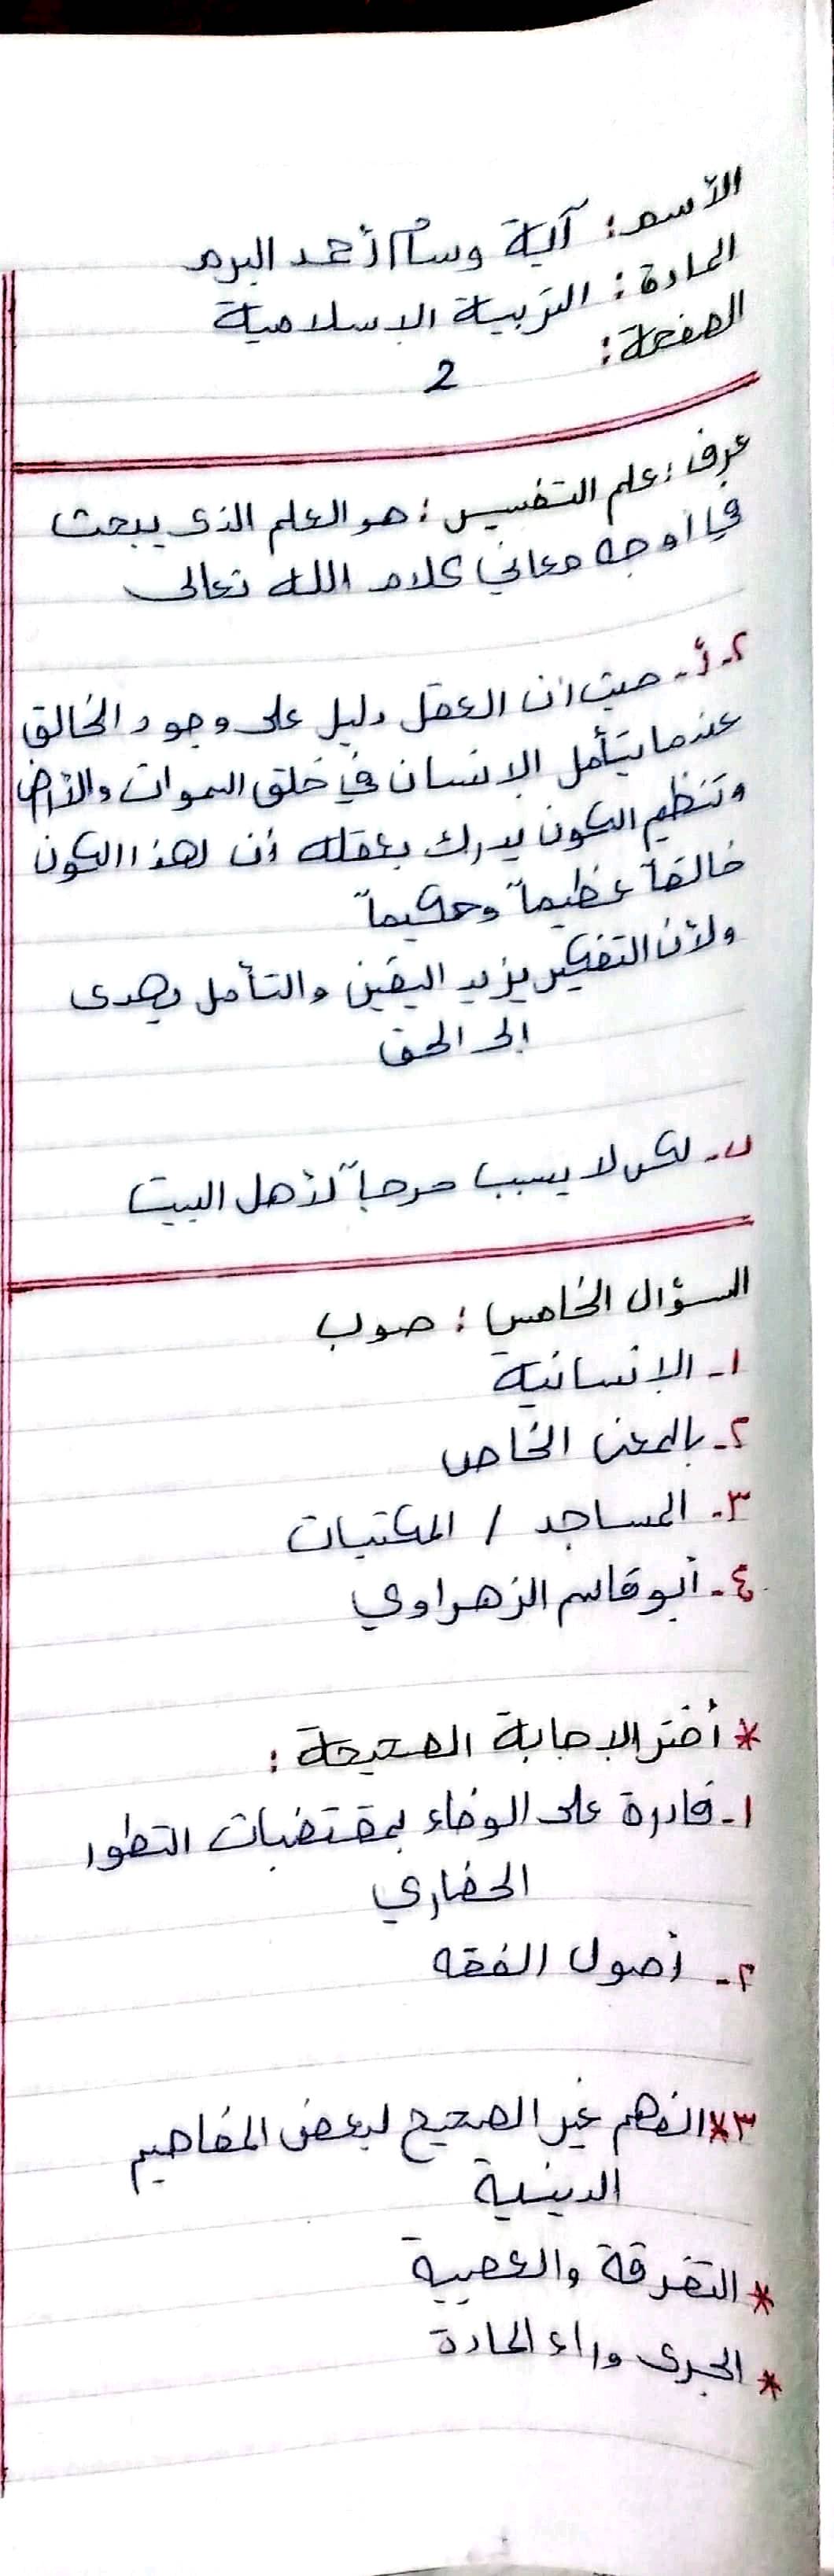 الأسم: آية وسام أحمد البرم
المادة: التربية الاسلامية
الصفحة:
2
عرف: علم التفسير: هو العلم الذي يبحث
في أوجه معاني كلام الله تعالى
٢-أ- حيث أن العقل دليل على وجود الخالق
عندما يتأمل الإنسان في خلق السموات والأرض
وتنظيم الكون يدرك بعقله أن لهذا الكون
خالقاً عظيماً وحكيماً
ولأن التفكير يزيد اليقين والتأمل يهدى
إلى الحق
ب- لكى لا يسبب حرجاً لأهل البيت
السؤال الخامس: صوب
١- الإنسانية
٢- بالمعنى الخاص
٣- المساجد / المكتبات
٤- أبو قاسم الزهراوي
* أختر الإجابة الصحيحة:
١- قادرة على الوفاء بمقتضيات التطور
الحضاري
٢- أصول الفقه
٣* الفهم غير الصحيح لبعض المفاهيم
الدينية
* التفرقة والعصبية
* الجرى وراء المادة